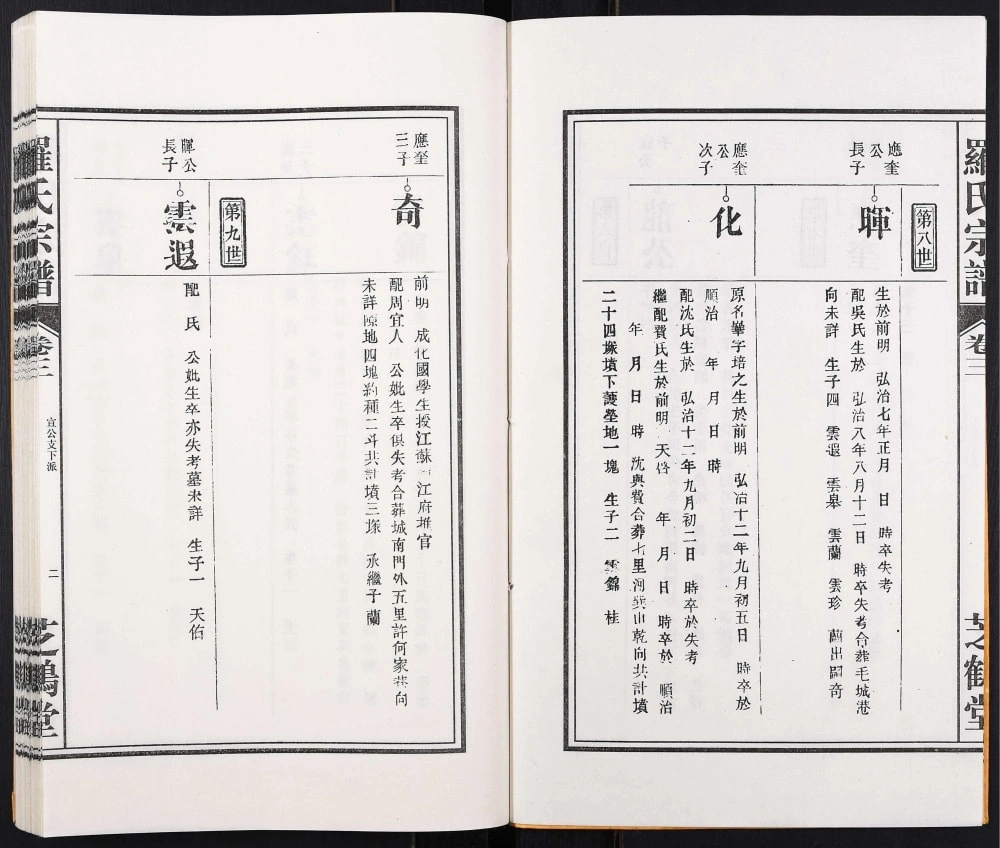 羅氏宗譜
卷三
芝鶴堂
第八世
應奎
公
長子
暉
生於前明 弘治七年正月 日 時卒失考
配吳氏生於 弘治八年八月十二日 時卒失考合葬毛城港
向未詳 生子四 雲遐 雲皋 雲蘭 雲珍 蘭出嗣奇
應奎
公
次子
化
原名 字培之生於前明 弘治十二年九月初五日 時卒於
順治 年 月 日 時
配沈氏生於 弘治十二年九月初二日 時卒於失考
繼配費氏生於前明 天啓 年 月 日 時卒於 順治
年 月 日 時 沈與費合葬七里河 山乾向共計墳
二十四塚墳下護塋地一塊 生子二 雲錦 桂
應奎
三子
奇
前明 成化國學生授江蘇 江府推官
配周宜人 公妣生卒俱失考合葬城南門外五里許何家 向
未詳 地四塊約種二斗共計墳三塚 承繼子蘭
第九世
暉公
長子
雲遐
配 氏 公妣生卒亦失考墓未詳 生子一 天佑
羅氏宗譜
卷三
宣公支下派
二
芝鶴堂